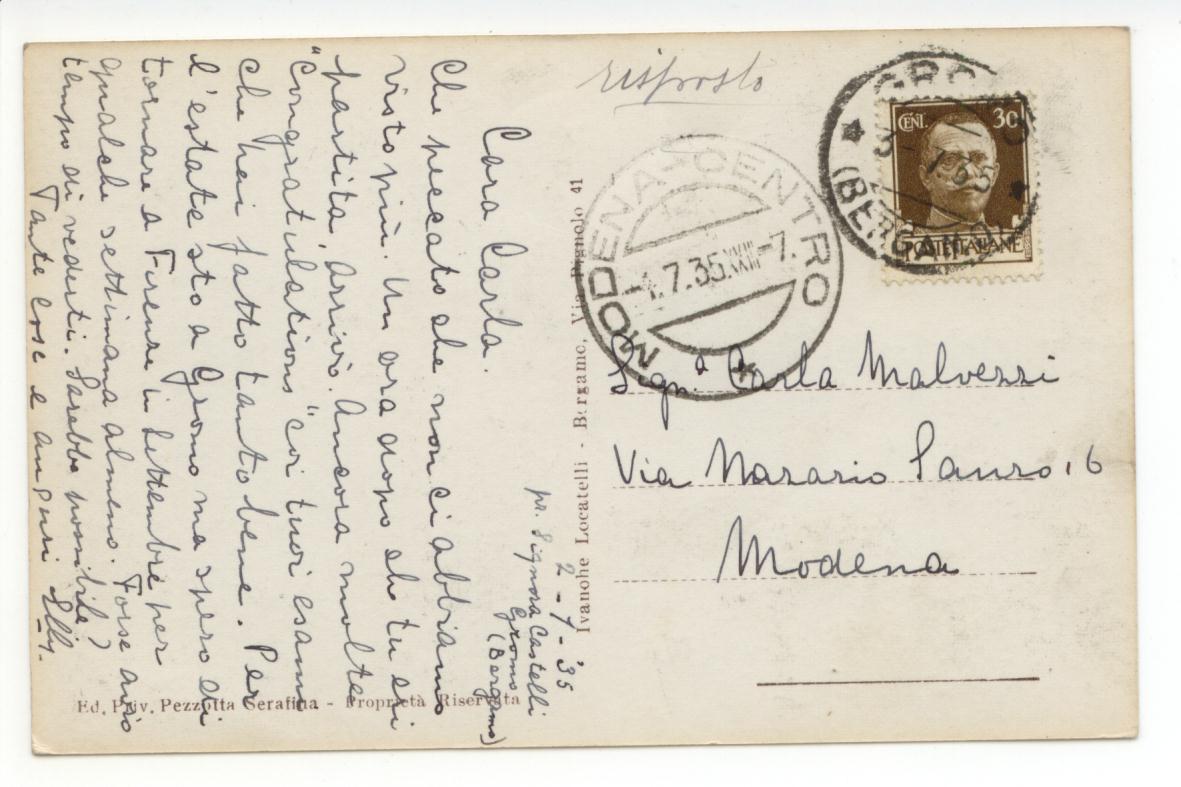 risposto
GRO
(BERGAMO)
3 - 7 35
CENT. 30
POSTE ITALIANE
MODENA-CENTRO
-4.7.35 XIII -7.
Sign.ª Carla Malvezzi
Via Nazario Sauro, 16
Modena
Ivanohe Locatelli - Bergamo, Via Pignolo 41
2-7-'35
pr. Signora Castelli
Gromo
(Bergamo)
Cara Carla.
Che peccato che non ci abbiamo
visto più. Un ora dopo che tu sei
partita, arrivò. Ancora molte
"Congratulations" coi tuoi esami
che hai fatto tanto bene. Per
l'estate sto a Gromo ma spero di
tornare a Firenze in Settembre per
qualche settimana almeno. Forse avrò
tempo di vederti. Sarebbe possibile?
Tante cose e auguri Elly.
Ed. Priv. Pezzotta Serafina - Proprietà Riservata